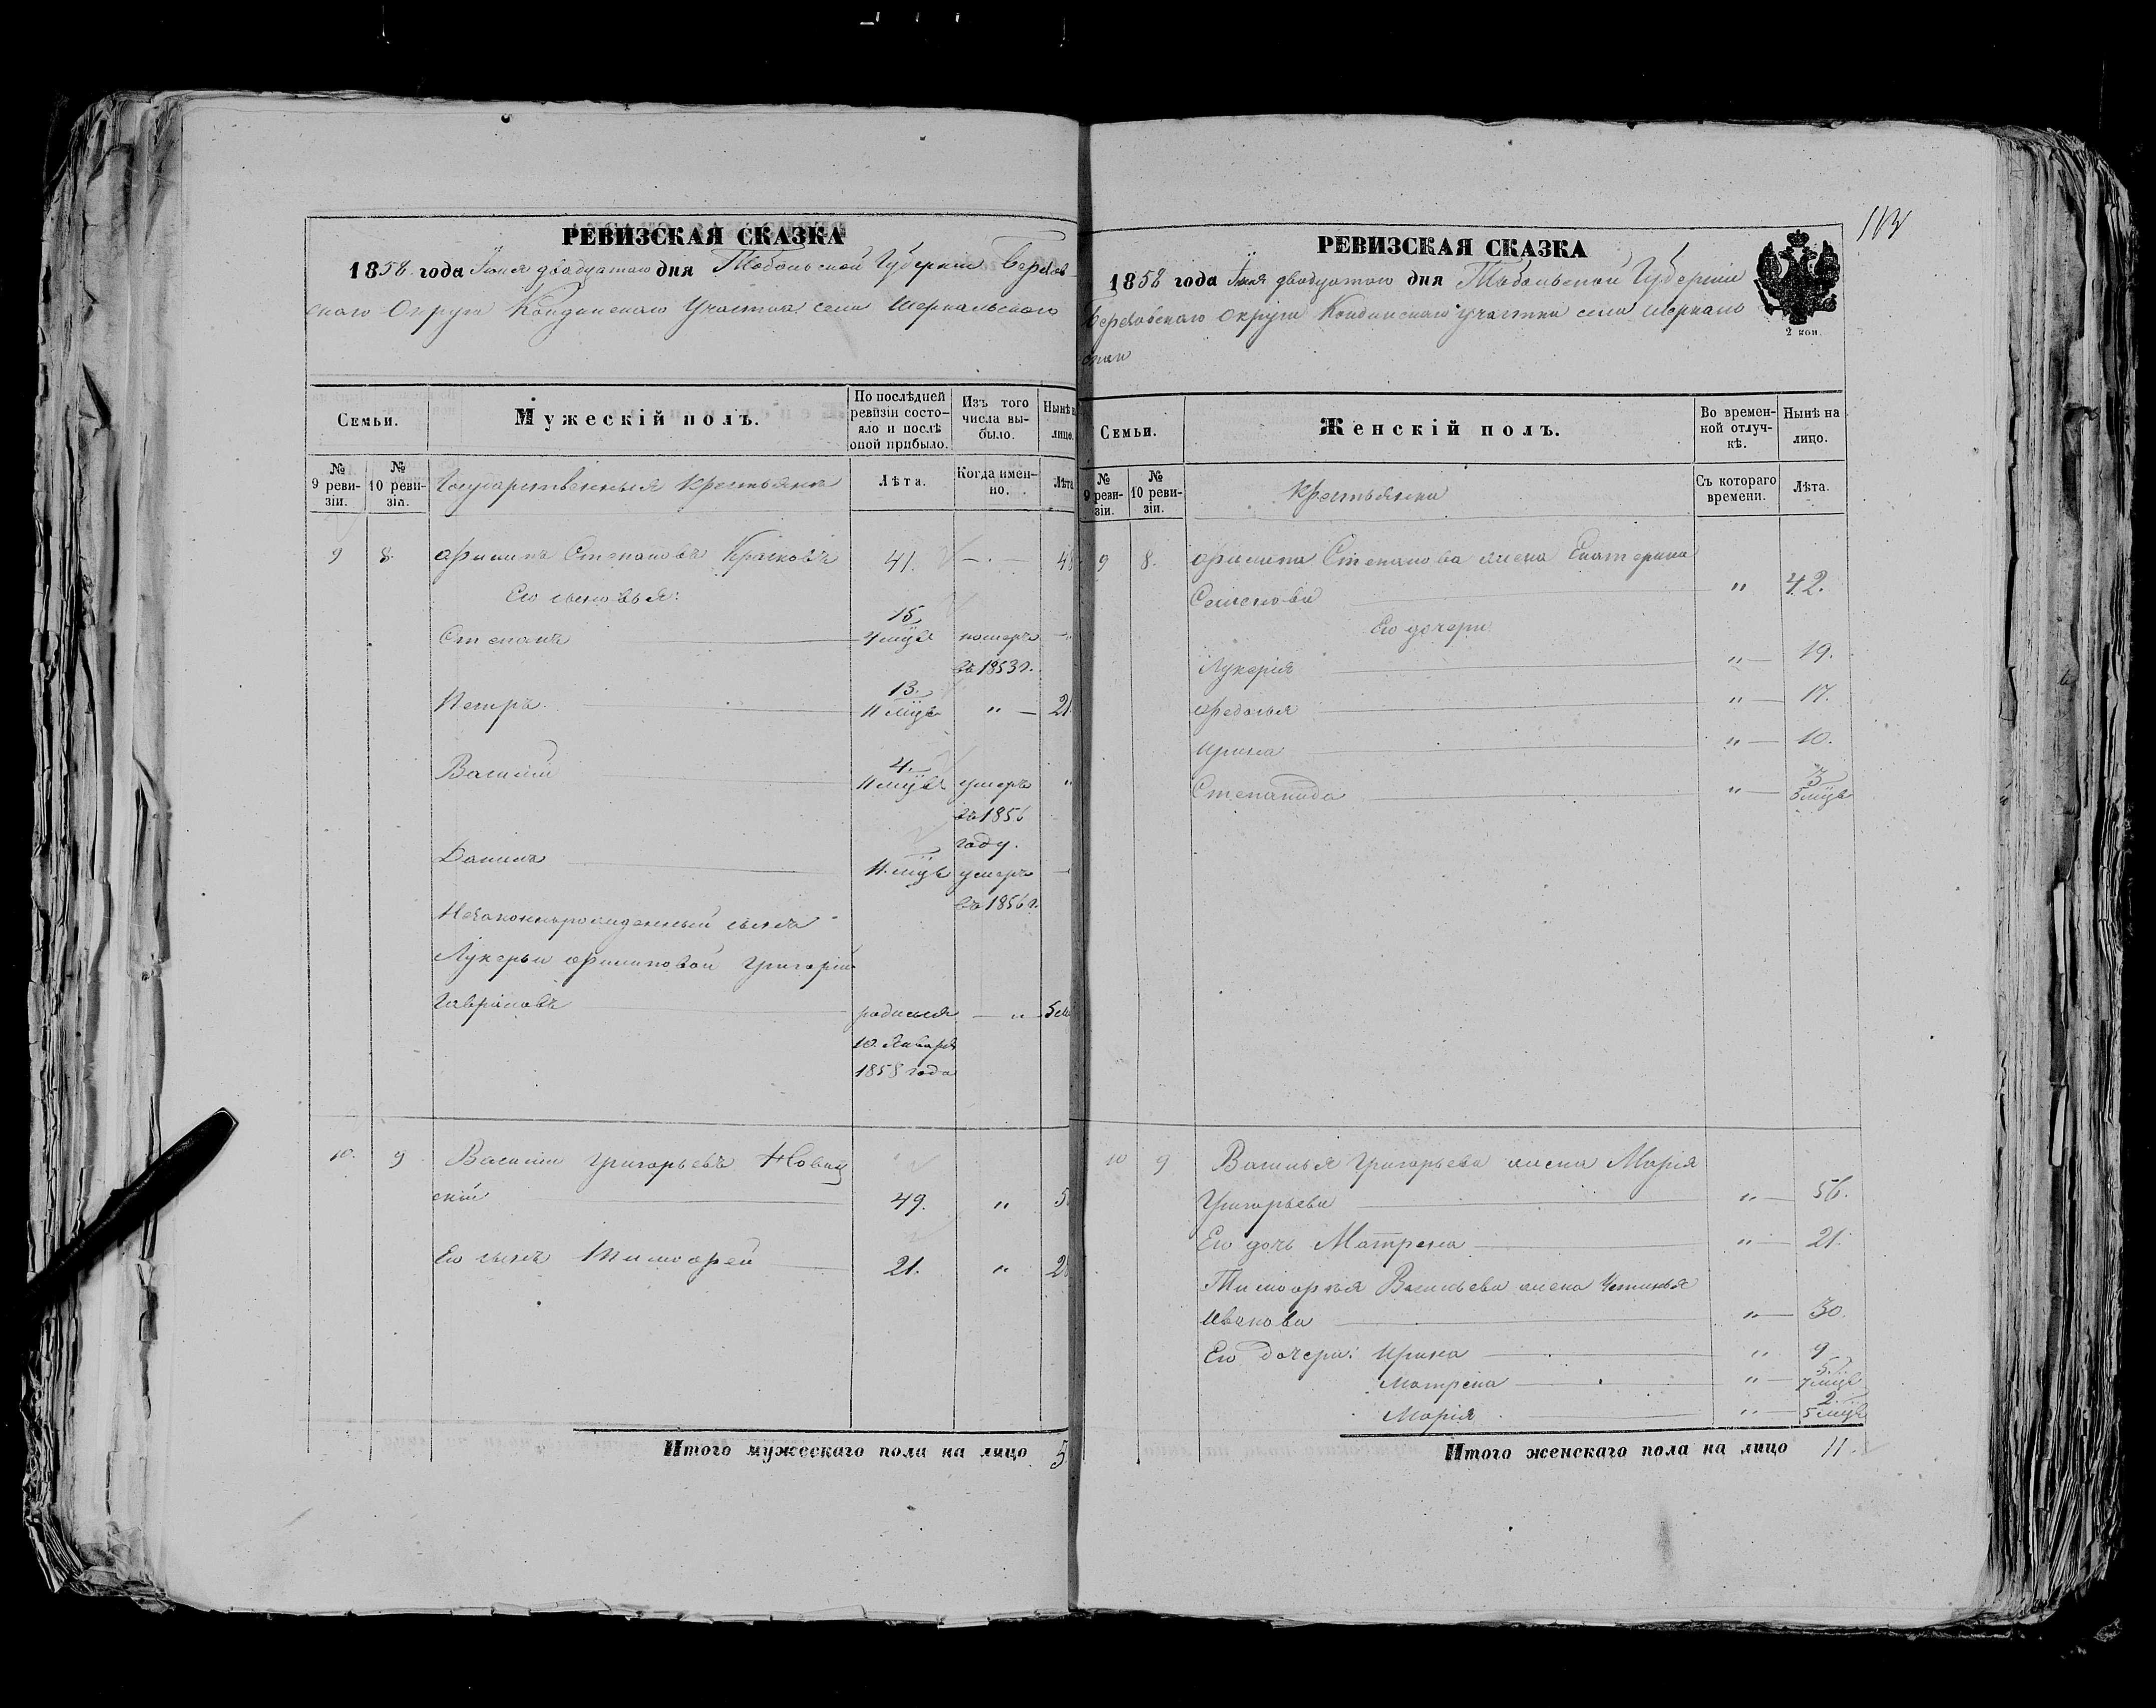 РЕВИЗСКАЯ СКАЗКА
1858 года Іюня двадцатаго дня Тобольской Губерніи Березов-
скаго Округа Кондинскаго Участка села Шеркальскаго
Семьи.
Мужескій полъ.
По послѣдней
ревизіи состо-
яло и послѣ
оной прибыло.
Изъ того
числа вы-
было.
Нынѣ
лицо.
№
9 реви-
зіи.
№
10 реви-
зіи.
Государственныя Крестьяна
Лѣта.
Когда имен-
но.
Лѣта
9 8. Филипъ Степановъ 41. — · —
Его сыновья:
15
Степанъ 4 мцъ померъ
въ 1853 г.
13.
Петръ. 11 мцъ " — 21
4.
Василій 11 мцъ умеръ "
въ 1856
году.
Данилъ 11 мцъ умеръ —
въ 1856 г.
Незаконнырожденный сынъ
Лукерьи Филиповой Григорій
Гавриловъ родился — " 5
10. Января
1858 года
10. 9 Василій Григорьевъ Новиц
скій 49. " 5
Его сынъ Тимофей 21. " 2
Итого мужескаго пола на лицо 5
РЕВИЗСКАЯ СКАЗКА
1858 года Іюня двадцатаго дня Тобольской Губерніи
Березовскаго Округа Кондинскаго участка села Шеркаль
скаго
2 коп.
Семьи.
Женскій полъ.
Во времен-
ной отлуч-
кѣ.
Нынѣ на
лицо.
№
9 реви-
зіи.
№
10 реви-
зіи.
Крестьянки
Съ котораго
времени.
Лѣта.
9 8. Филипа Степанова жена Екатерина
Семенова " 42.
Его дочери
Лукерія " — 19.
Федосья " — 17.
Ирина " — 10.
3
Степанида " — 5 мцъ
10 9 Василья Григорьева жена Марія
Григорьева " — 56.
Его дочь Матрена " — 21.
Тимофея Васильева жена Устинья
Иванова " — 30.
Его дочери: Ирина " 9
5.
Матрена " — 7 мцъ
2.
Марія " — 5 мцъ
Итого женскаго пола на лицо 11.